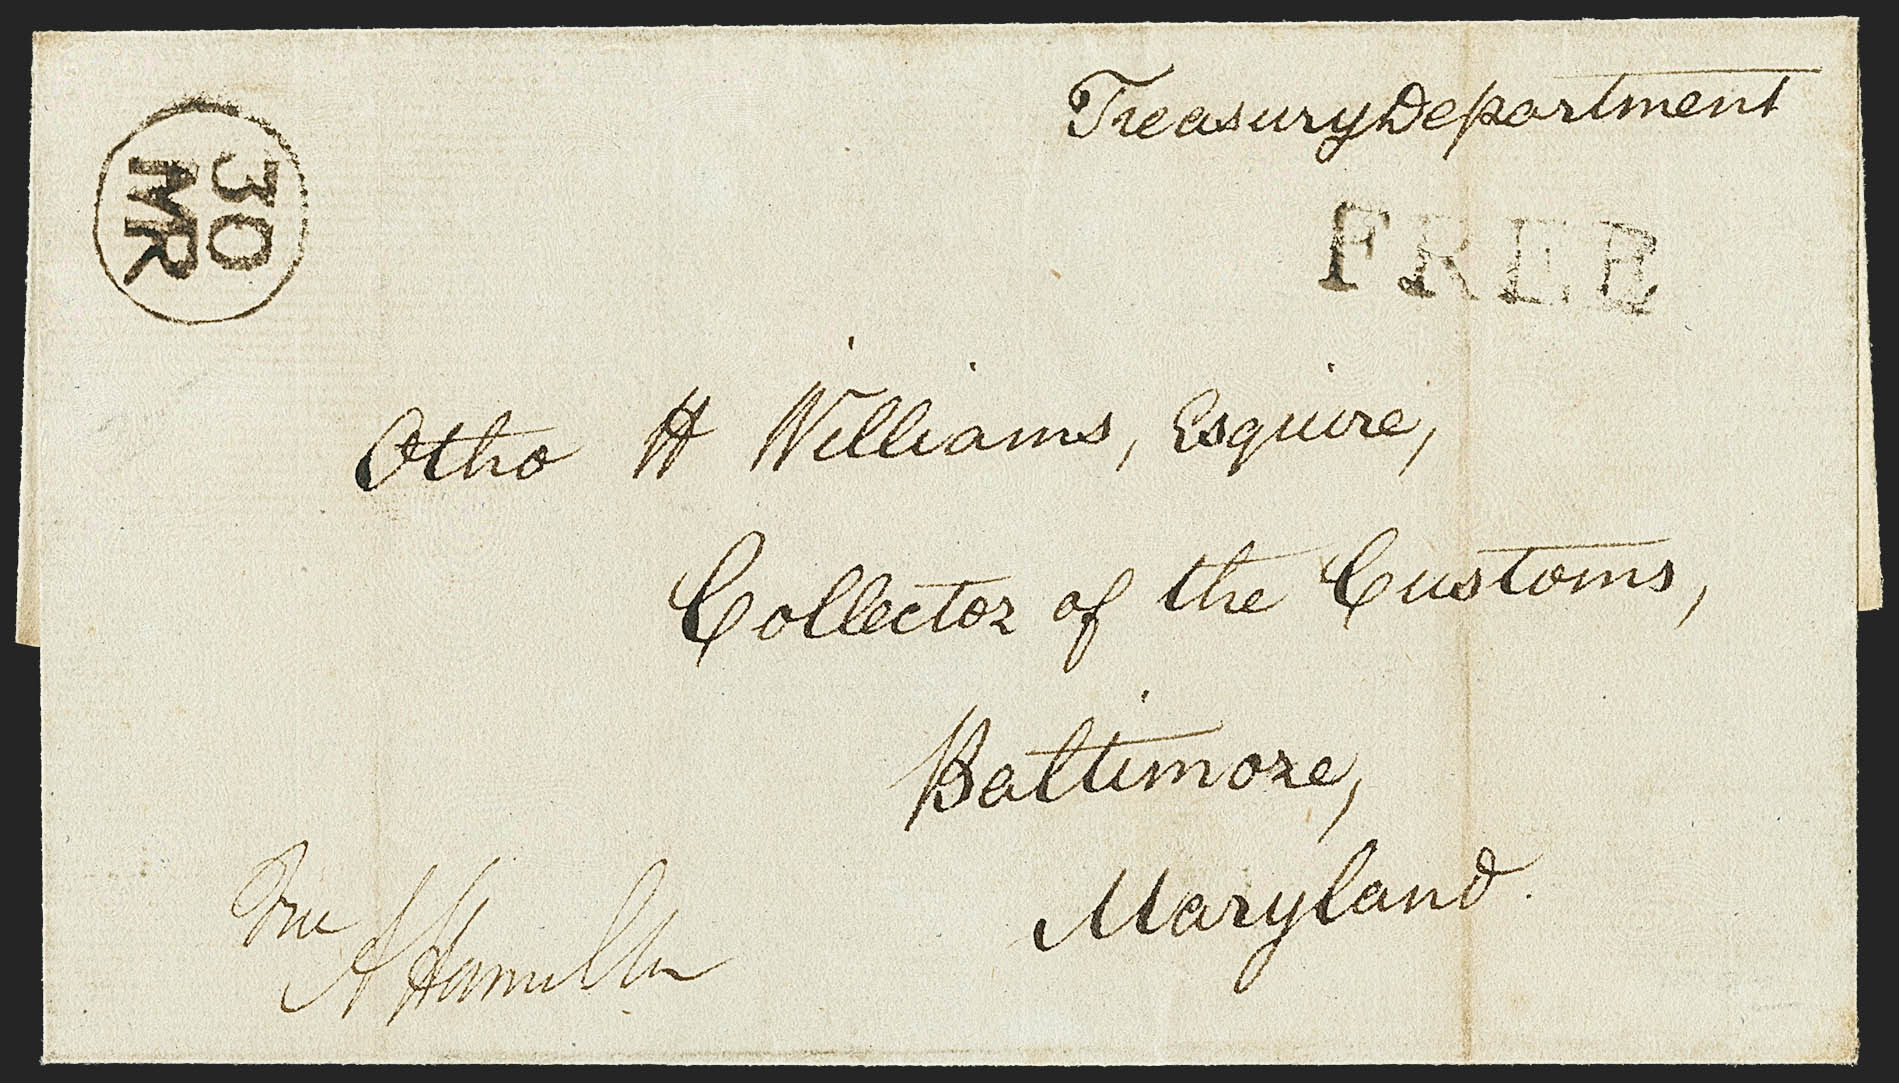 Treasury Department
30
MR
FREE
Otho H Williams, Esquire,
Collector of the Customs,
Baltimore,
Maryland.
Free
A Hamilton